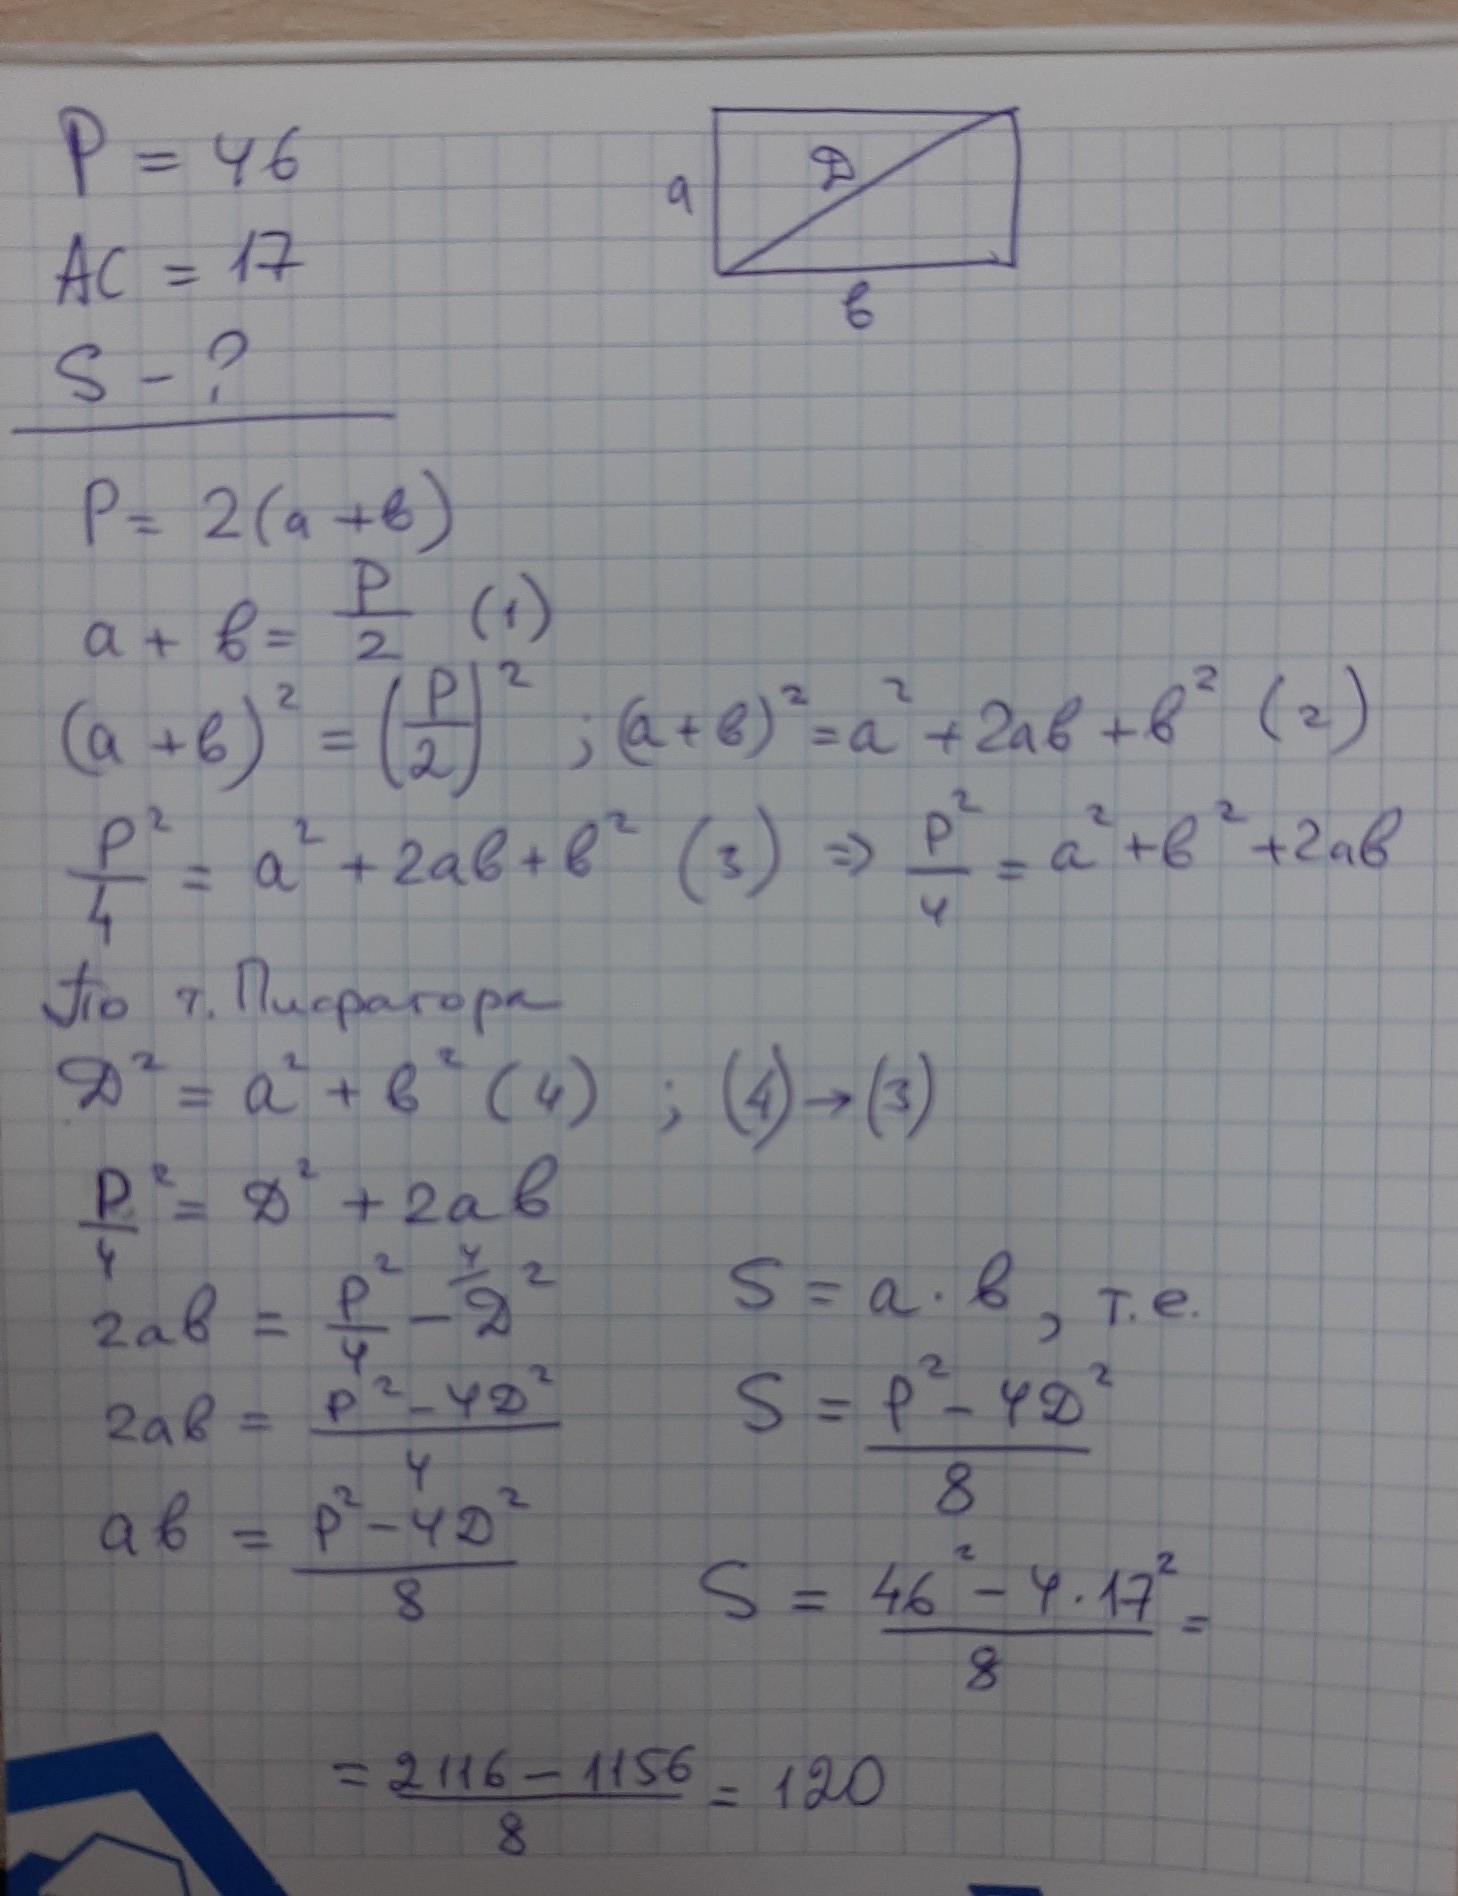 P = 46
AC = 17
S - ?
a
D
в
P = 2(a + в)
a + в = P/2 (1)
(a + в)² = (P/2)² ; (a + в)² = a² + 2aв + в² (2)
P²/4 = a² + 2aв + в² (3) ⇒ P²/4 = a² + в² + 2aв
По т. Пифагора
D² = a² + в² (4) ; (4) → (3)
P²/4 = D² + 2aв
2aв = P²/4 - 4/D²
2aв = (P² - 4D²)/4
aв = (P² - 4D²)/8
S = a · в, т.е.
S = (P² - 4D²)/8
S = (46² - 4 · 17²)/8 =
= (2116 - 1156)/8 = 120